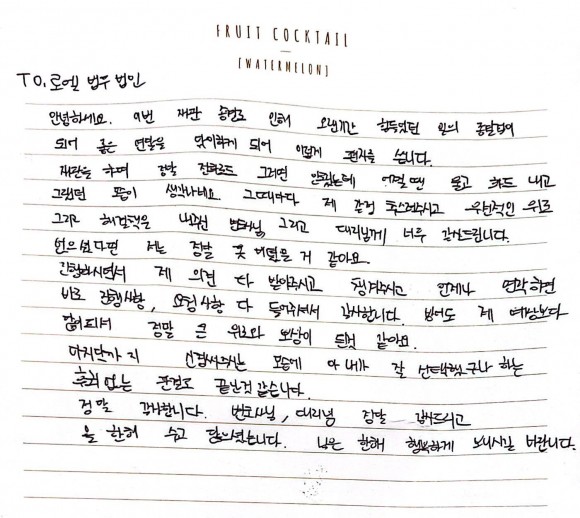 FRUIT COCKTAIL
[WATERMELON]
TO. 로엘 법무 법인
안녕하세요. 이번 재판 승변호 인해 오랜기간 힘들었던 일의 종말점이
되어 좋은 연말을 맞이하게 되어 이렇게 편지를 씁니다.
재판을 하며 정말 전화로도 그러면 안됐는데 어떨땐 울고 하도 내고
그랬던 모습이 생각나네요. 그때마다 제 감정 추스려주시고 우선적인 위로
그리고 해결책을 내주신 변호사님, 그리고 대리님께 너무 감사드립니다.
없으셨다면 저는 정말 못 버텼을 거 같아요.
진행하시면서 제 의견 다 받아주시고 챙겨주시고 언제나 연락하면
바로 진행사항, 요청사항 다 들어주셔서 감사합니다. 벌어도 제 예상보다
많이 되서 정말 큰 위로와 보상이 된것 같아요.
마지막까지 신경써주는 모습에 아 내가 잘 선택했구나 하는
후회 없는 판결로 끝난것 같습니다.
정말 감사합니다. 변호사님, 대리님 정말 감사드리고
올 한해 수고 많으셨습니다. 남은 한해 행복하게 보내시길 바랍니다.